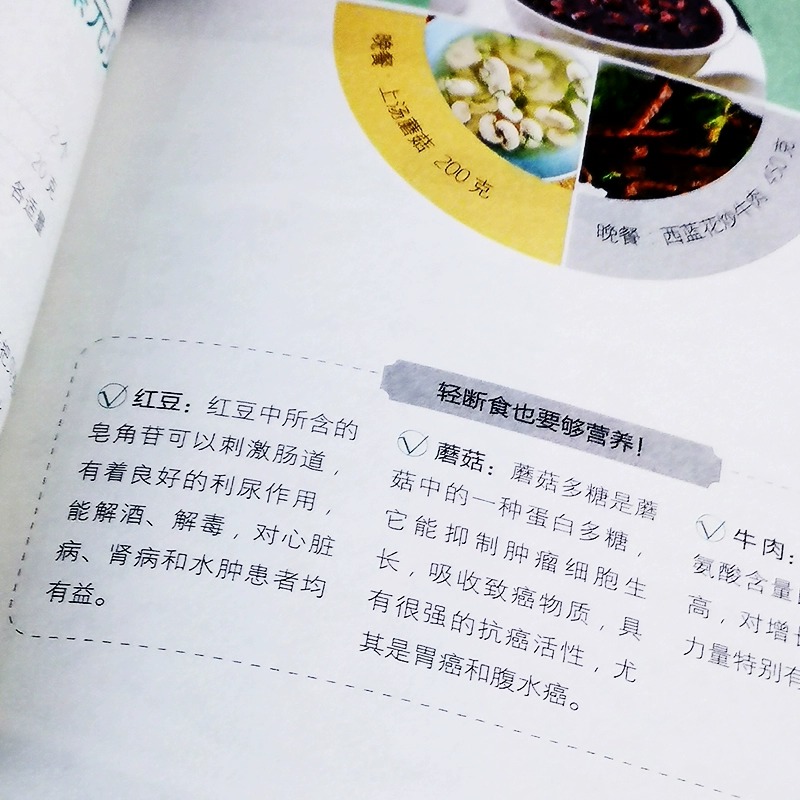 晚餐 上汤蘑菇 200 克
晚餐 西蓝花炒牛肉 450 克
2个
20 克
各适量
轻断食也要够营养！
红豆：红豆中所含的
皂角苷可以刺激肠道，
有着良好的利尿作用，
能解酒、解毒，对心脏
病、肾病和水肿患者均
有益。
蘑菇：蘑菇多糖是蘑
菇中的一种蛋白多糖，
它能抑制肿瘤细胞生
长，吸收致癌物质，具
有很强的抗癌活性，尤
其是胃癌和腹水癌。
牛肉：
氨酸含量
高，对增长
力量特别有